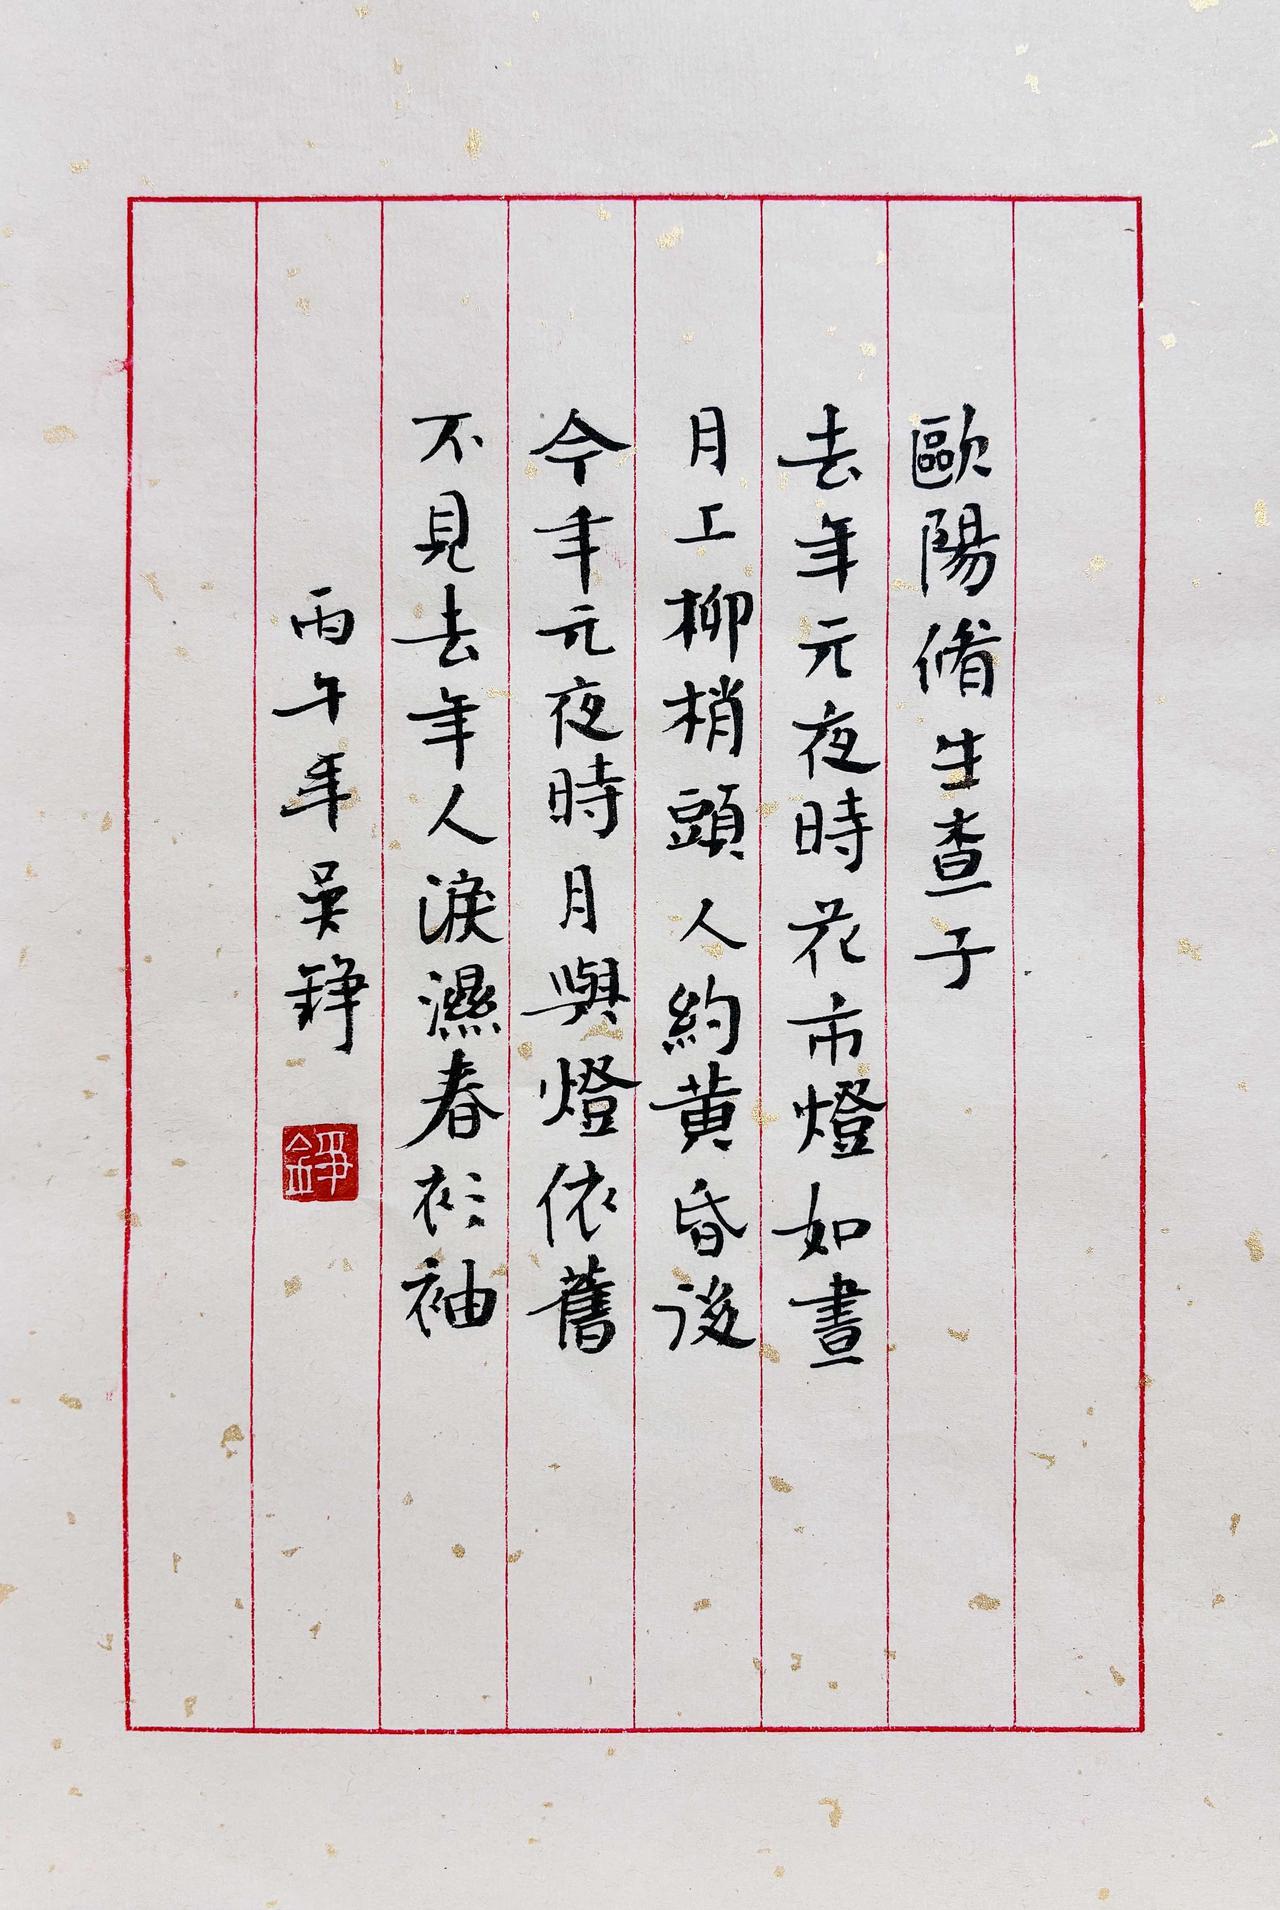 歐陽脩生查子
去年元夜時花市燈如晝
月上柳梢頭人約黄昏後
今年元夜時月與燈依舊
不見去年人淚濕春衫袖
丙午年吳錚
錚